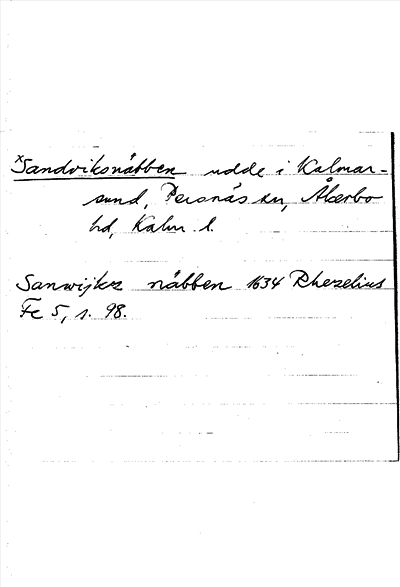 xSandviksnäbben udde i Kalmar-
sund, Persnäs sn, Åkerbo
hd, Kalm. l.
Sanwijkz näbben 1634 Rhezelius
Fc 5, s. 98.